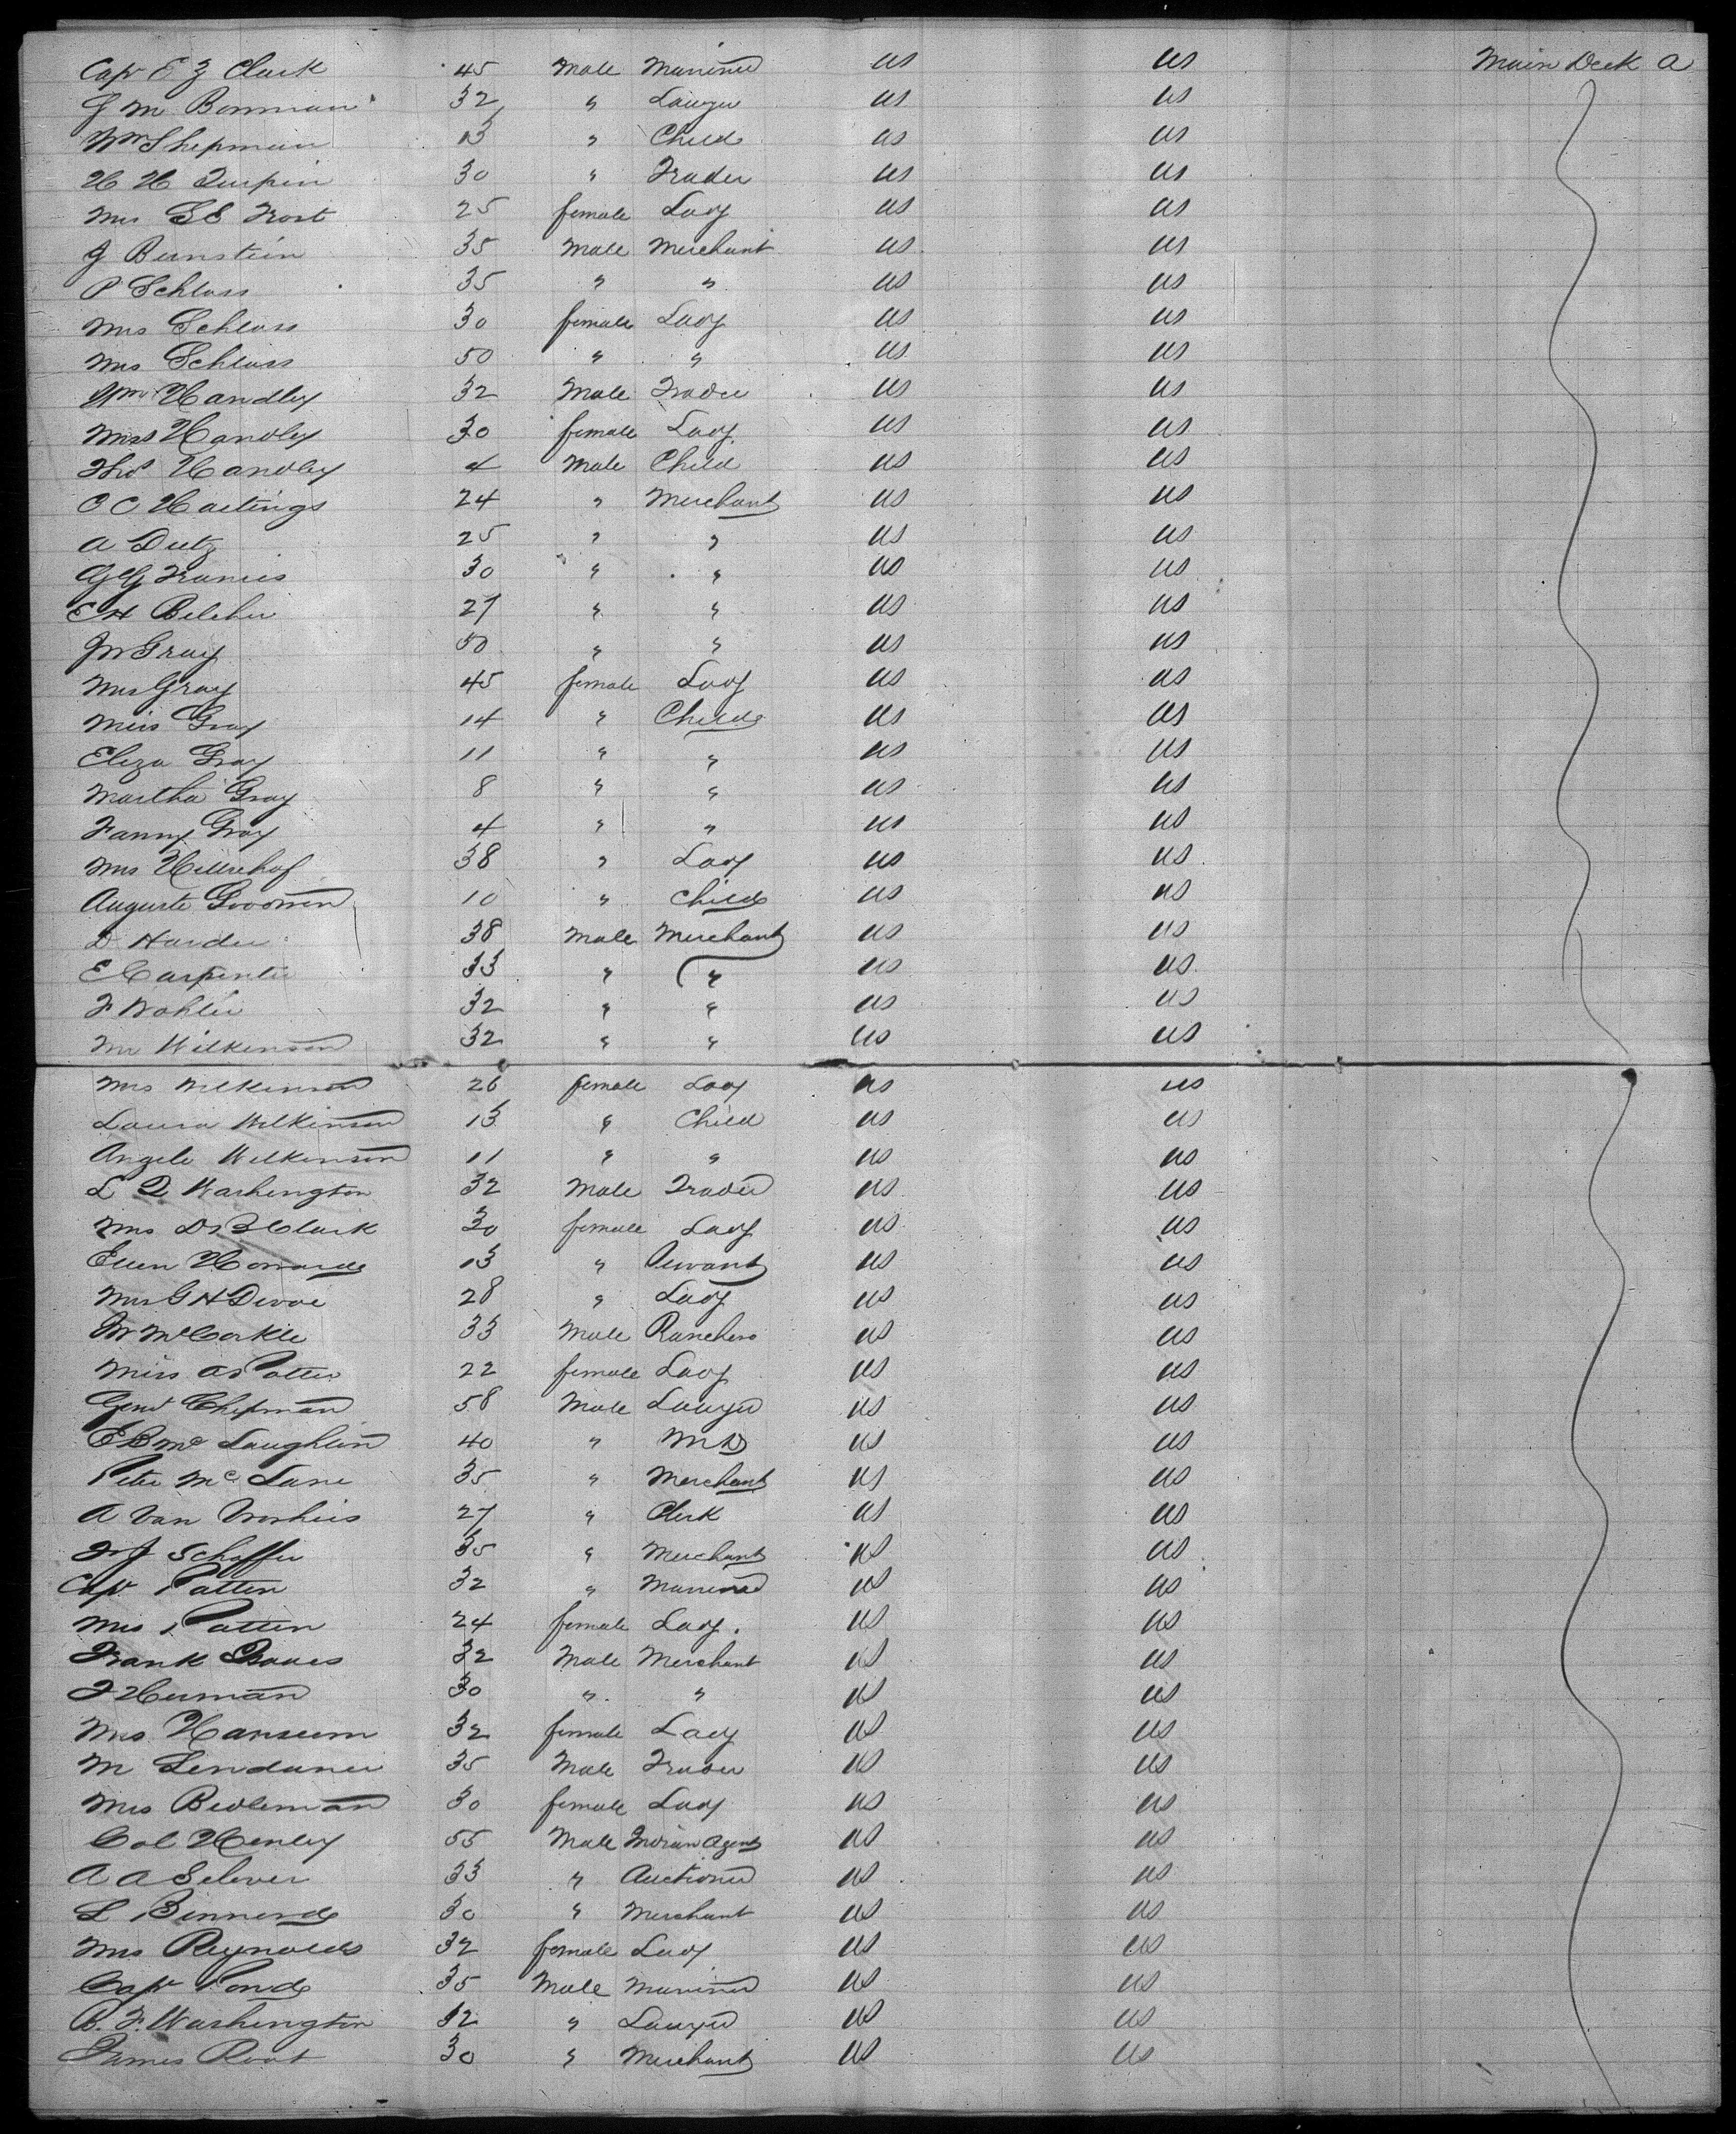 Capt E Z Clark 45 Male Mariner US US Main Deck A
J M Bowman 32 " Lawyer US US
Wm Shepman 13 " Child US US
H H Turpin 30 " Trader US US
Mrs G E Frost 25 female Lady US US
J Bernstein 35 Male Merchant US US
P Schloss 35 " " US US
Mrs Schloss 30 female Lady US US
Mrs Schloss 50 " " US US
Wm Handley 32 Male Trader US US
Mrs Handley 30 female Lady US US
Thos Handley 4 Male Child US US
C C Hastings 24 " Merchant US US
A Dietz 25 " " US US
G G Francis 30 " " US US
E H Belcher 27 " " US US
Gray 50 " " US US
Mrs Gray 45 female Lady US US
Miss Gray 14 " Child US US
Eliza Gray 11 " " US US
Martha Gray 8 " " US US
Fanny Gray 4 " " US US
Mrs 38 " Lady US US
Auguste Goodwin 10 " Child US US
D Harder 38 Male Merchant US US
E Carpenter 33 " " US US
F Wohler 32 " " US US
Mr Wilkinson 32 " " US US
Mrs Wilkinson 26 female Lady US US
Laura Wilkinson 13 " Child US US
Angele Wilkinson 11 " " US US
L Q Washington 32 Male Trader US US
Mrs Dr Clark 30 female Lady US US
Ellen Howard 13 " Servant US US
Mrs G H Devoe 28 " Lady US US
McCorkle 33 Male Ranchero US US
Miss A Potter 22 female Lady US US
Genl Chipman 58 Male Lawyer US US
E B McLaughlin 40 " MD US US
Peter McLane 35 " Merchant US US
A Van Vorhies 27 " Clerk US US
J Schaffer 35 " Merchant US US
Capt Patten 32 " Mariner US US
Mrs Patten 24 female Lady. US US
Frank 32 Male Merchant US US
J Herman 30 " " US US
Mrs Hanscum 32 female Lady US US
M Lendauer 35 Male Trader US US
Mrs Bedleman 30 female Lady US US
Col Henley 55 Male Indian Agent US US
A A Selover 33 " Auctioner US US
L Binnerd 30 " Merchant US US
Mrs Reynolds 32 female Lady US US
Capt Pond 35 Male Mariner US US
B. F. Washington 32 " Lawyer US US
James Root 30 " Merchant US US